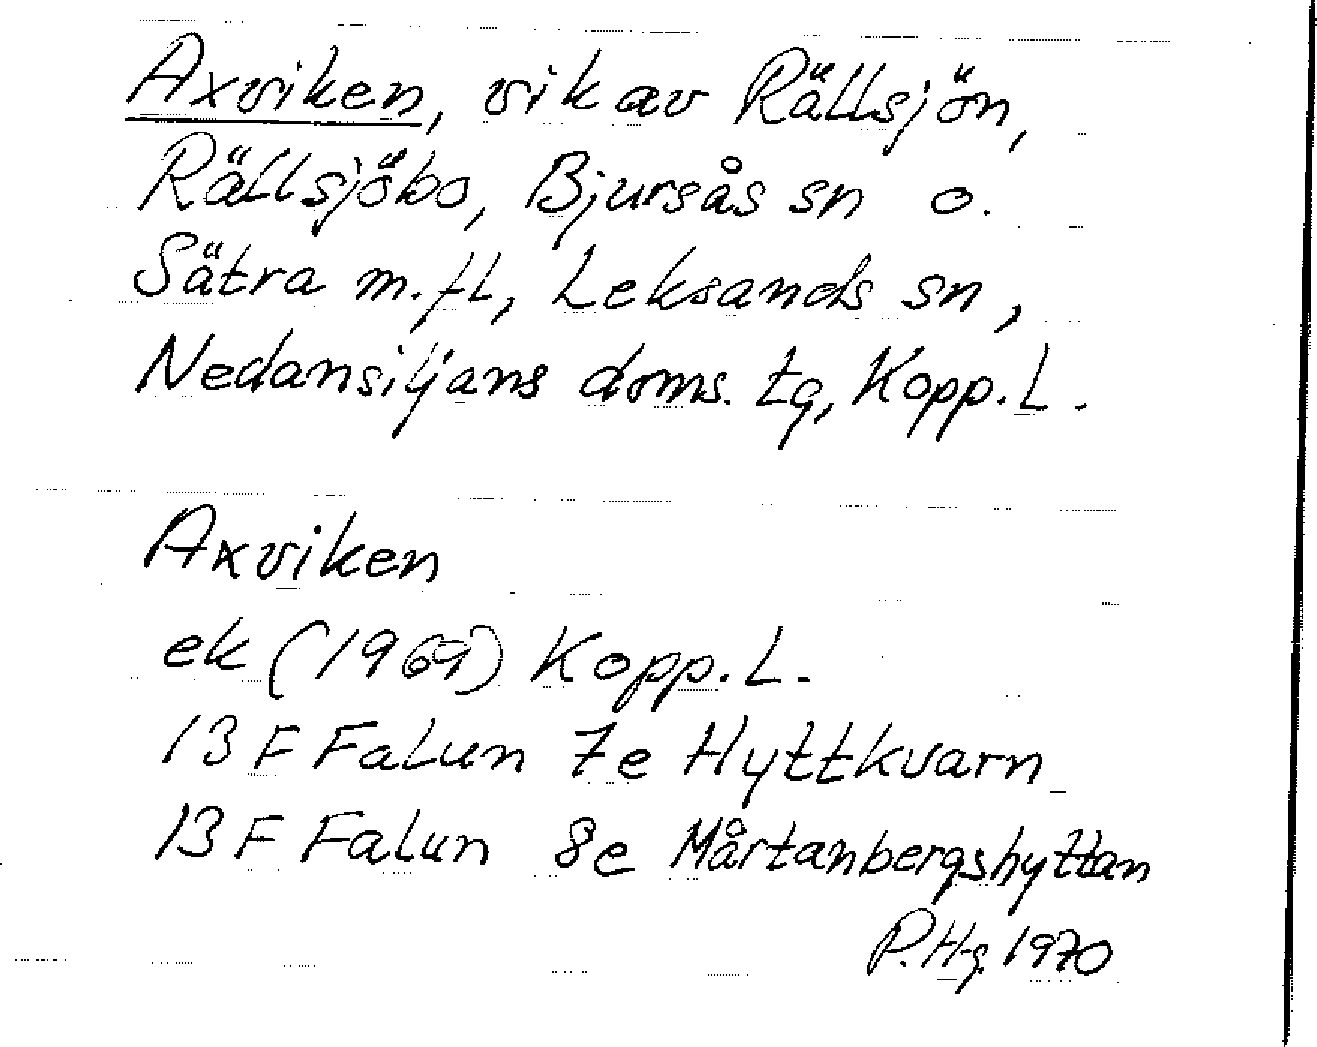 Axviken, vik av Rällsjön,
Rällsjöbo, Bjursås sn o.
Sätra m.fl, Leksands sn,
Nedansiljans doms. tg, Kopp.L.
Axviken
ek (1969) Kopp.L.
13 F Falun 7e Hyttkvarn
13 F Falun 8e Mårtanbergshyttan
P.Hg. 1970